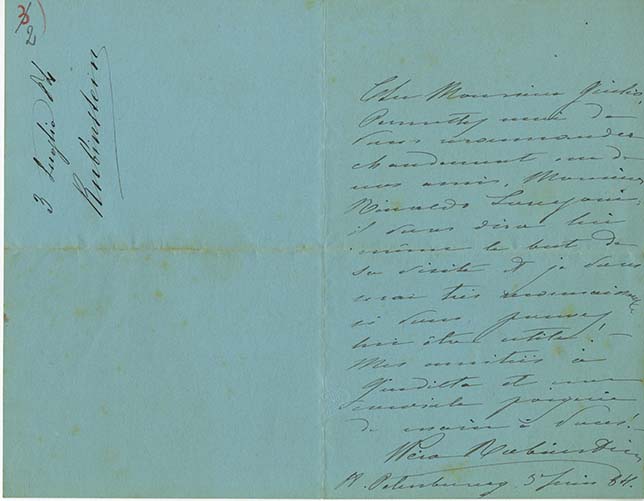 3
2
3 Luglio 84
Rubinstein
Cher Monsieur Giulio,
Permettez moi de
vous recommander
chaudement un de
nos amis, Monsieur
Rinaldo
il vous dira lui
même le but de
sa visite et je vous
serai très reconnaissante
si vous pouvez
lui être utile!
Mes amitiés à
Giuditta et une
poignée
de main à vous!
Wera Rubinstein
St. Petersbourg 84.